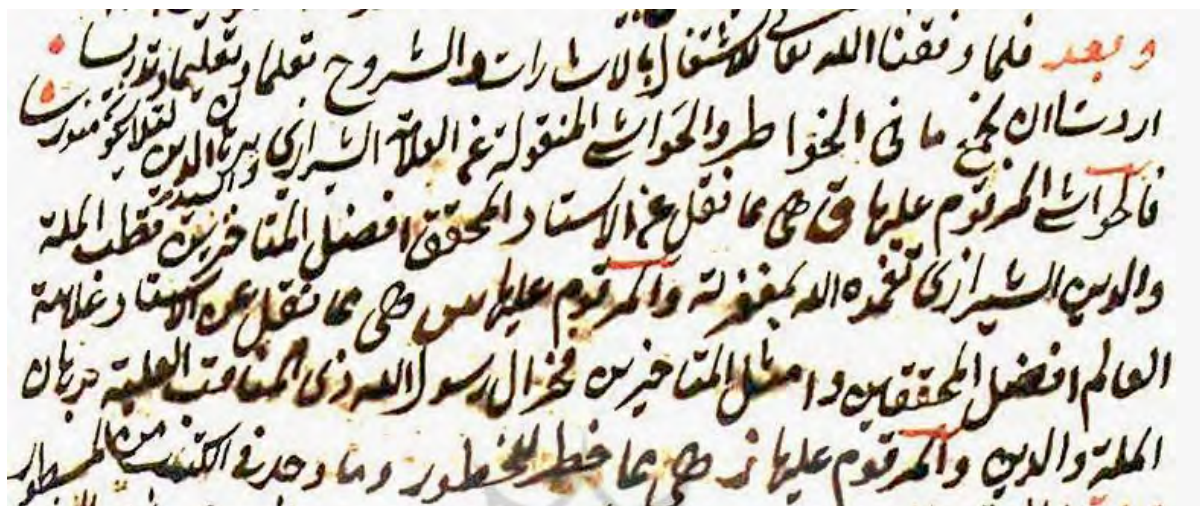 وبعد فلما وفقنا الله تعالى للاشتغال بالاشارات والشروح تعلما وتعليما وتدريسا
اردنا ان نجمع ما فى الخواطر والحواشى المنقولة عن العلامة الشيرازى والسيد برهان الدين
فالحواشى المرقوم عليها ق هى مما نقل عن الاستاد المحقق افضل المتاخرين قطب الملة
والدين الشيرازى تغمده الله بمغفرته والمرقوم عليها س هى مما نقل عن الاستاد علامة
العالم افضل المحققين وامثل المتاخرين فخر ال رسول الله ذى المناقب العلية برهان
الملة والدين والمرقوم عليها ز هى مما خطر للخطور وما وجد فى الكتب من المسطور